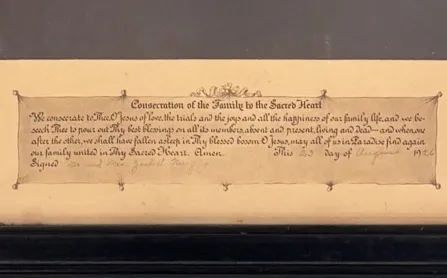 Consecration of the Family to the Sacred Heart
We consecrate to Thee, O Jesus of love, the trials and the joys and all the happiness of our family life, and we be-
seech Thee to pour out Thy best blessings on all its members, absent and present, living and dead—and when one
after the other, we shall have fallen asleep in Thy blessed bosom O Jesus, may all of us in Paradise find again
our family united in Thy Sacred Heart. Amen. This 23 day of August 1926
Signed Mr and Mrs